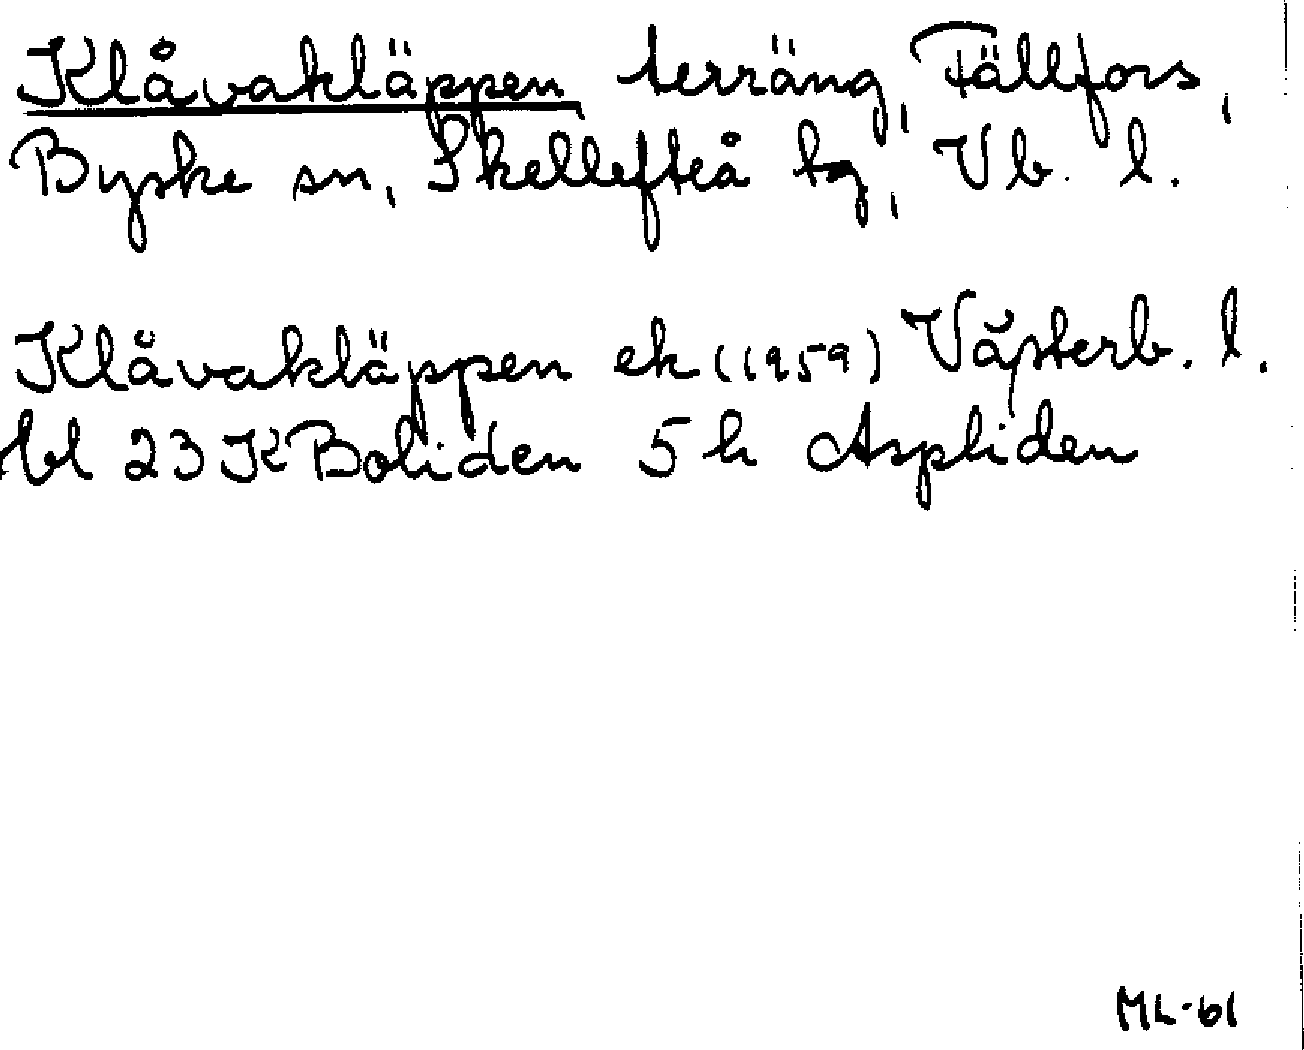 Klåvakläppen, terräng, Fällfors,
Byske sn, Skellefteå tg, Vb. l.
Klåvakläppen ek (1959) Västerb. l.
bl 23 K Boliden 5 h Aspliden
ML-61